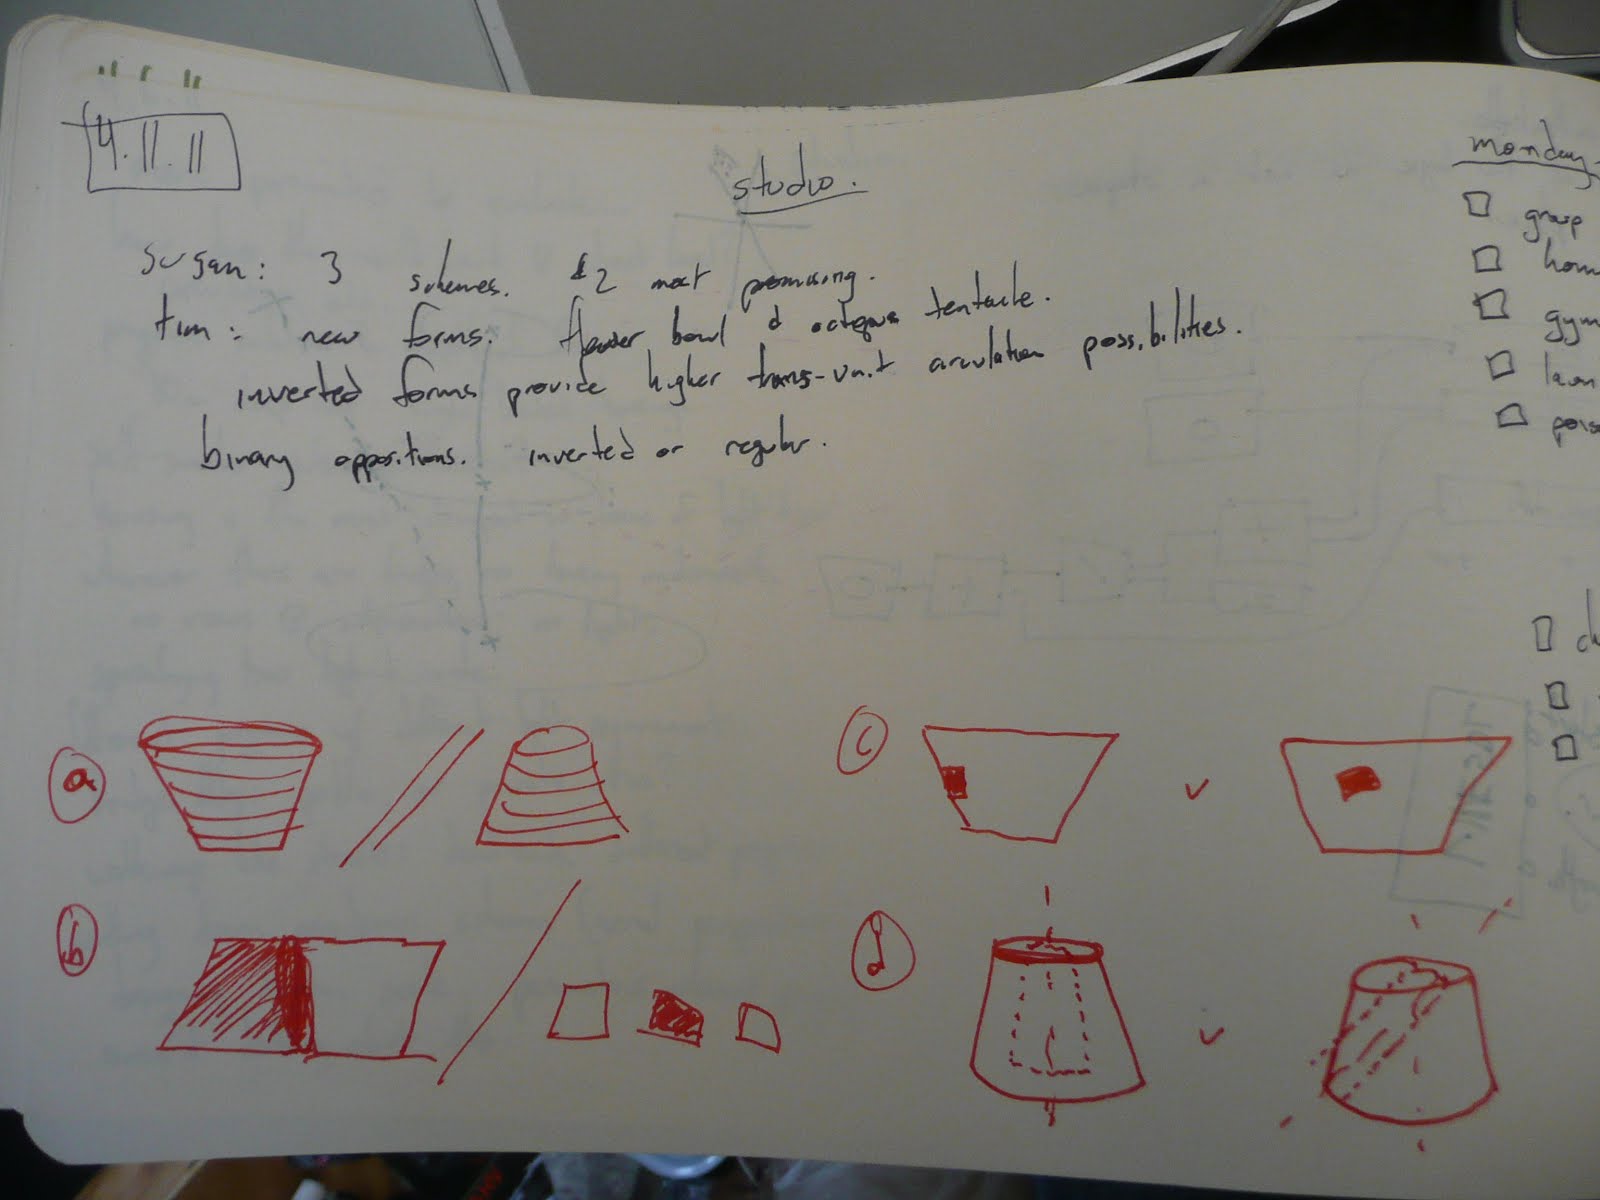 4.11.11
studio.
susan: 3 schemes. #2 most promising.
tim: new forms. flower bowl & octopus tentacle.
inverted forms provide higher trans-unit circulation possibilities.
binary oppositions. inverted or regular.
monday
group
gym
a
b
c
v
d
v